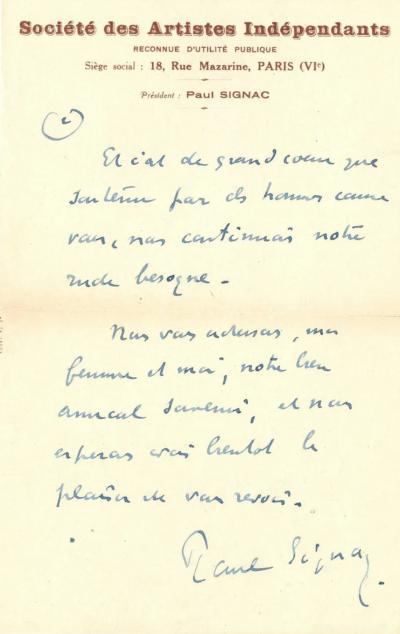 Société des Artistes Indépendants
RECONNUE D'UTILITÉ PUBLIQUE
Siège social : 18, Rue Mazarine, PARIS (VIe)
Président : Paul SIGNAC
(2)
Et c'est de grand cœur que
soutenu par des hommes comme
vous, nous continuons notre
rude besogne.
Nous vous adressons, ma
femme et moi, notre bien
amical souvenir, et nous
espérons avoir bientôt le
plaisir de vous revoir.
Paul Signac.